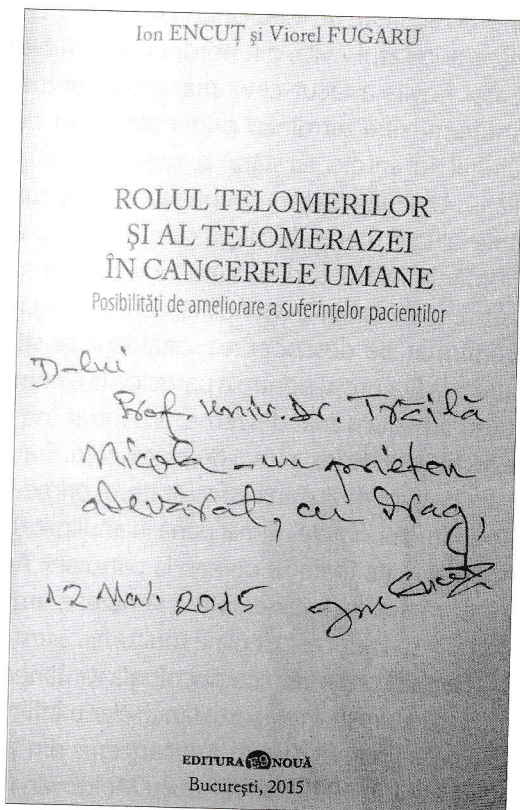 Ion ENCUȚ și Viorel FUGARU
ROLUL TELOMERILOR
ȘI AL TELOMERAZEI
ÎN CANCERELE UMANE
Posibilități de ameliorare a suferințelor pacienților
D-lui
Prof. Univ. Dr. Trăilă
Nicola - un prieten
adevărat, cu drag,
12 Noi. 2015 Ion Encuț
EDITURA E9 NOUĂ
București, 2015